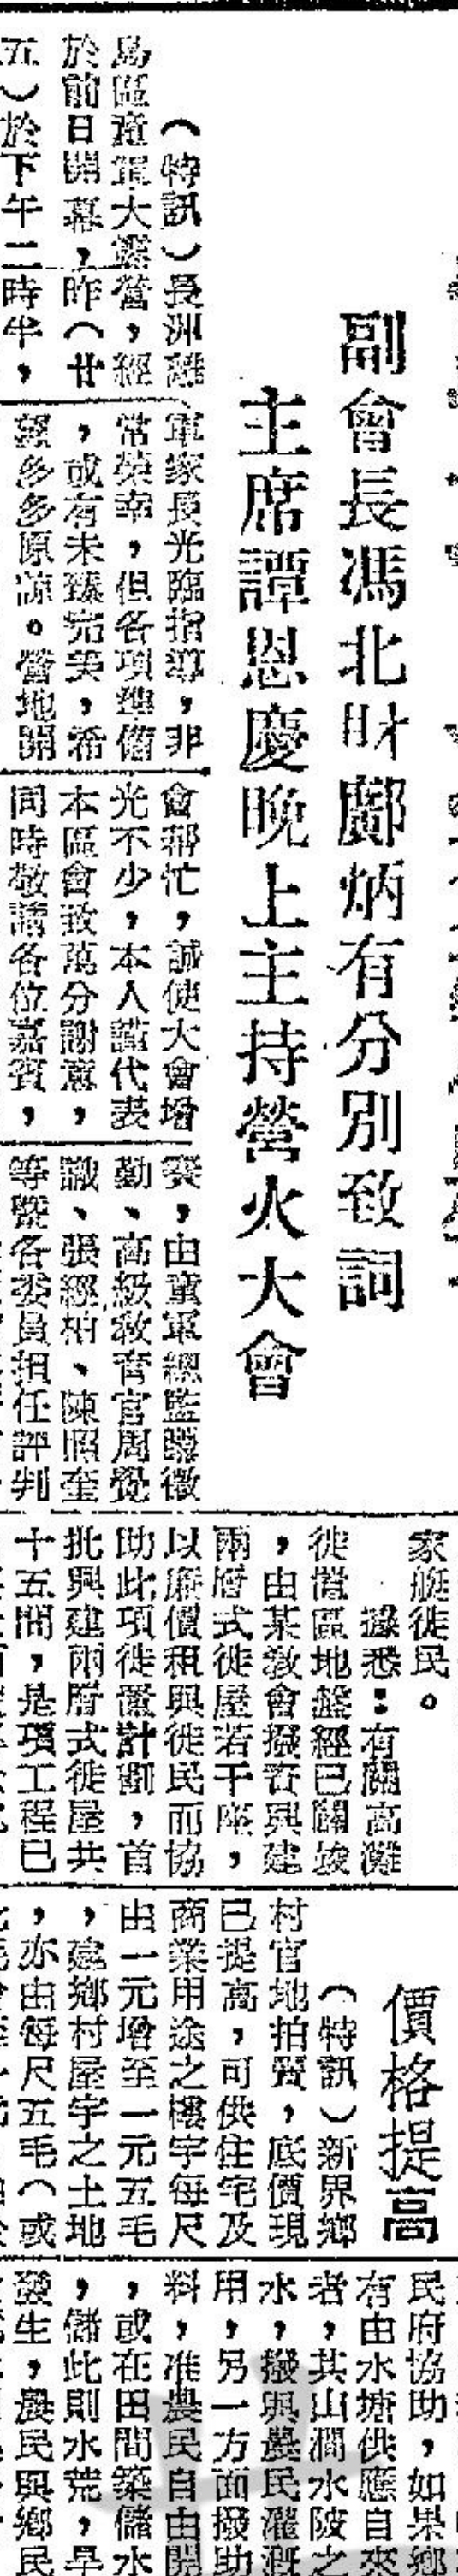 副會長馮北財鄺炳有分別致詞
主席譚恩慶晚上主持營火大會
（特訊）長洲離
島區童軍大露營，經
於前日開幕，昨（廿
五）於下午二時半，
軍家長光臨指導，非
常榮幸，但各項準備
，或有未臻完美，希
望多多原諒。營地開
會帮忙，誠使大會增
光不少，本人謹代表
本區會致萬分謝意，
同時敬請各位嘉賓，
賽，由童軍總監勝徵
勤、高級教育官周覺
識、張經柏、陳照奎
等暨各委員担任評判
家艇徙民。
據悉：有關高灘
徙置區地盤經已闢竣
，由某教會撥資興建
兩層式徙屋若干座，
以廉價租與徙民而協
助此項徙置計劃，首
批興建兩層式徙屋共
十五間，是項工程已
價格提高
（特訊）新界鄉
村官地拍賣，底價現
已提高，可供住宅及
商業用途之樓宇每尺
由一元增至一元五毛
，建鄉村屋宇之土地
，亦由每尺五毛（或
民府協助，如果鄉
有由水塘供應自來
者，其山澗水陂之
水，撥與農民灌溉
用，另一方面撥助
料，准農民自由開
，或在田間築儲水
，儲此則水荒，旱
發生，農民與鄉民